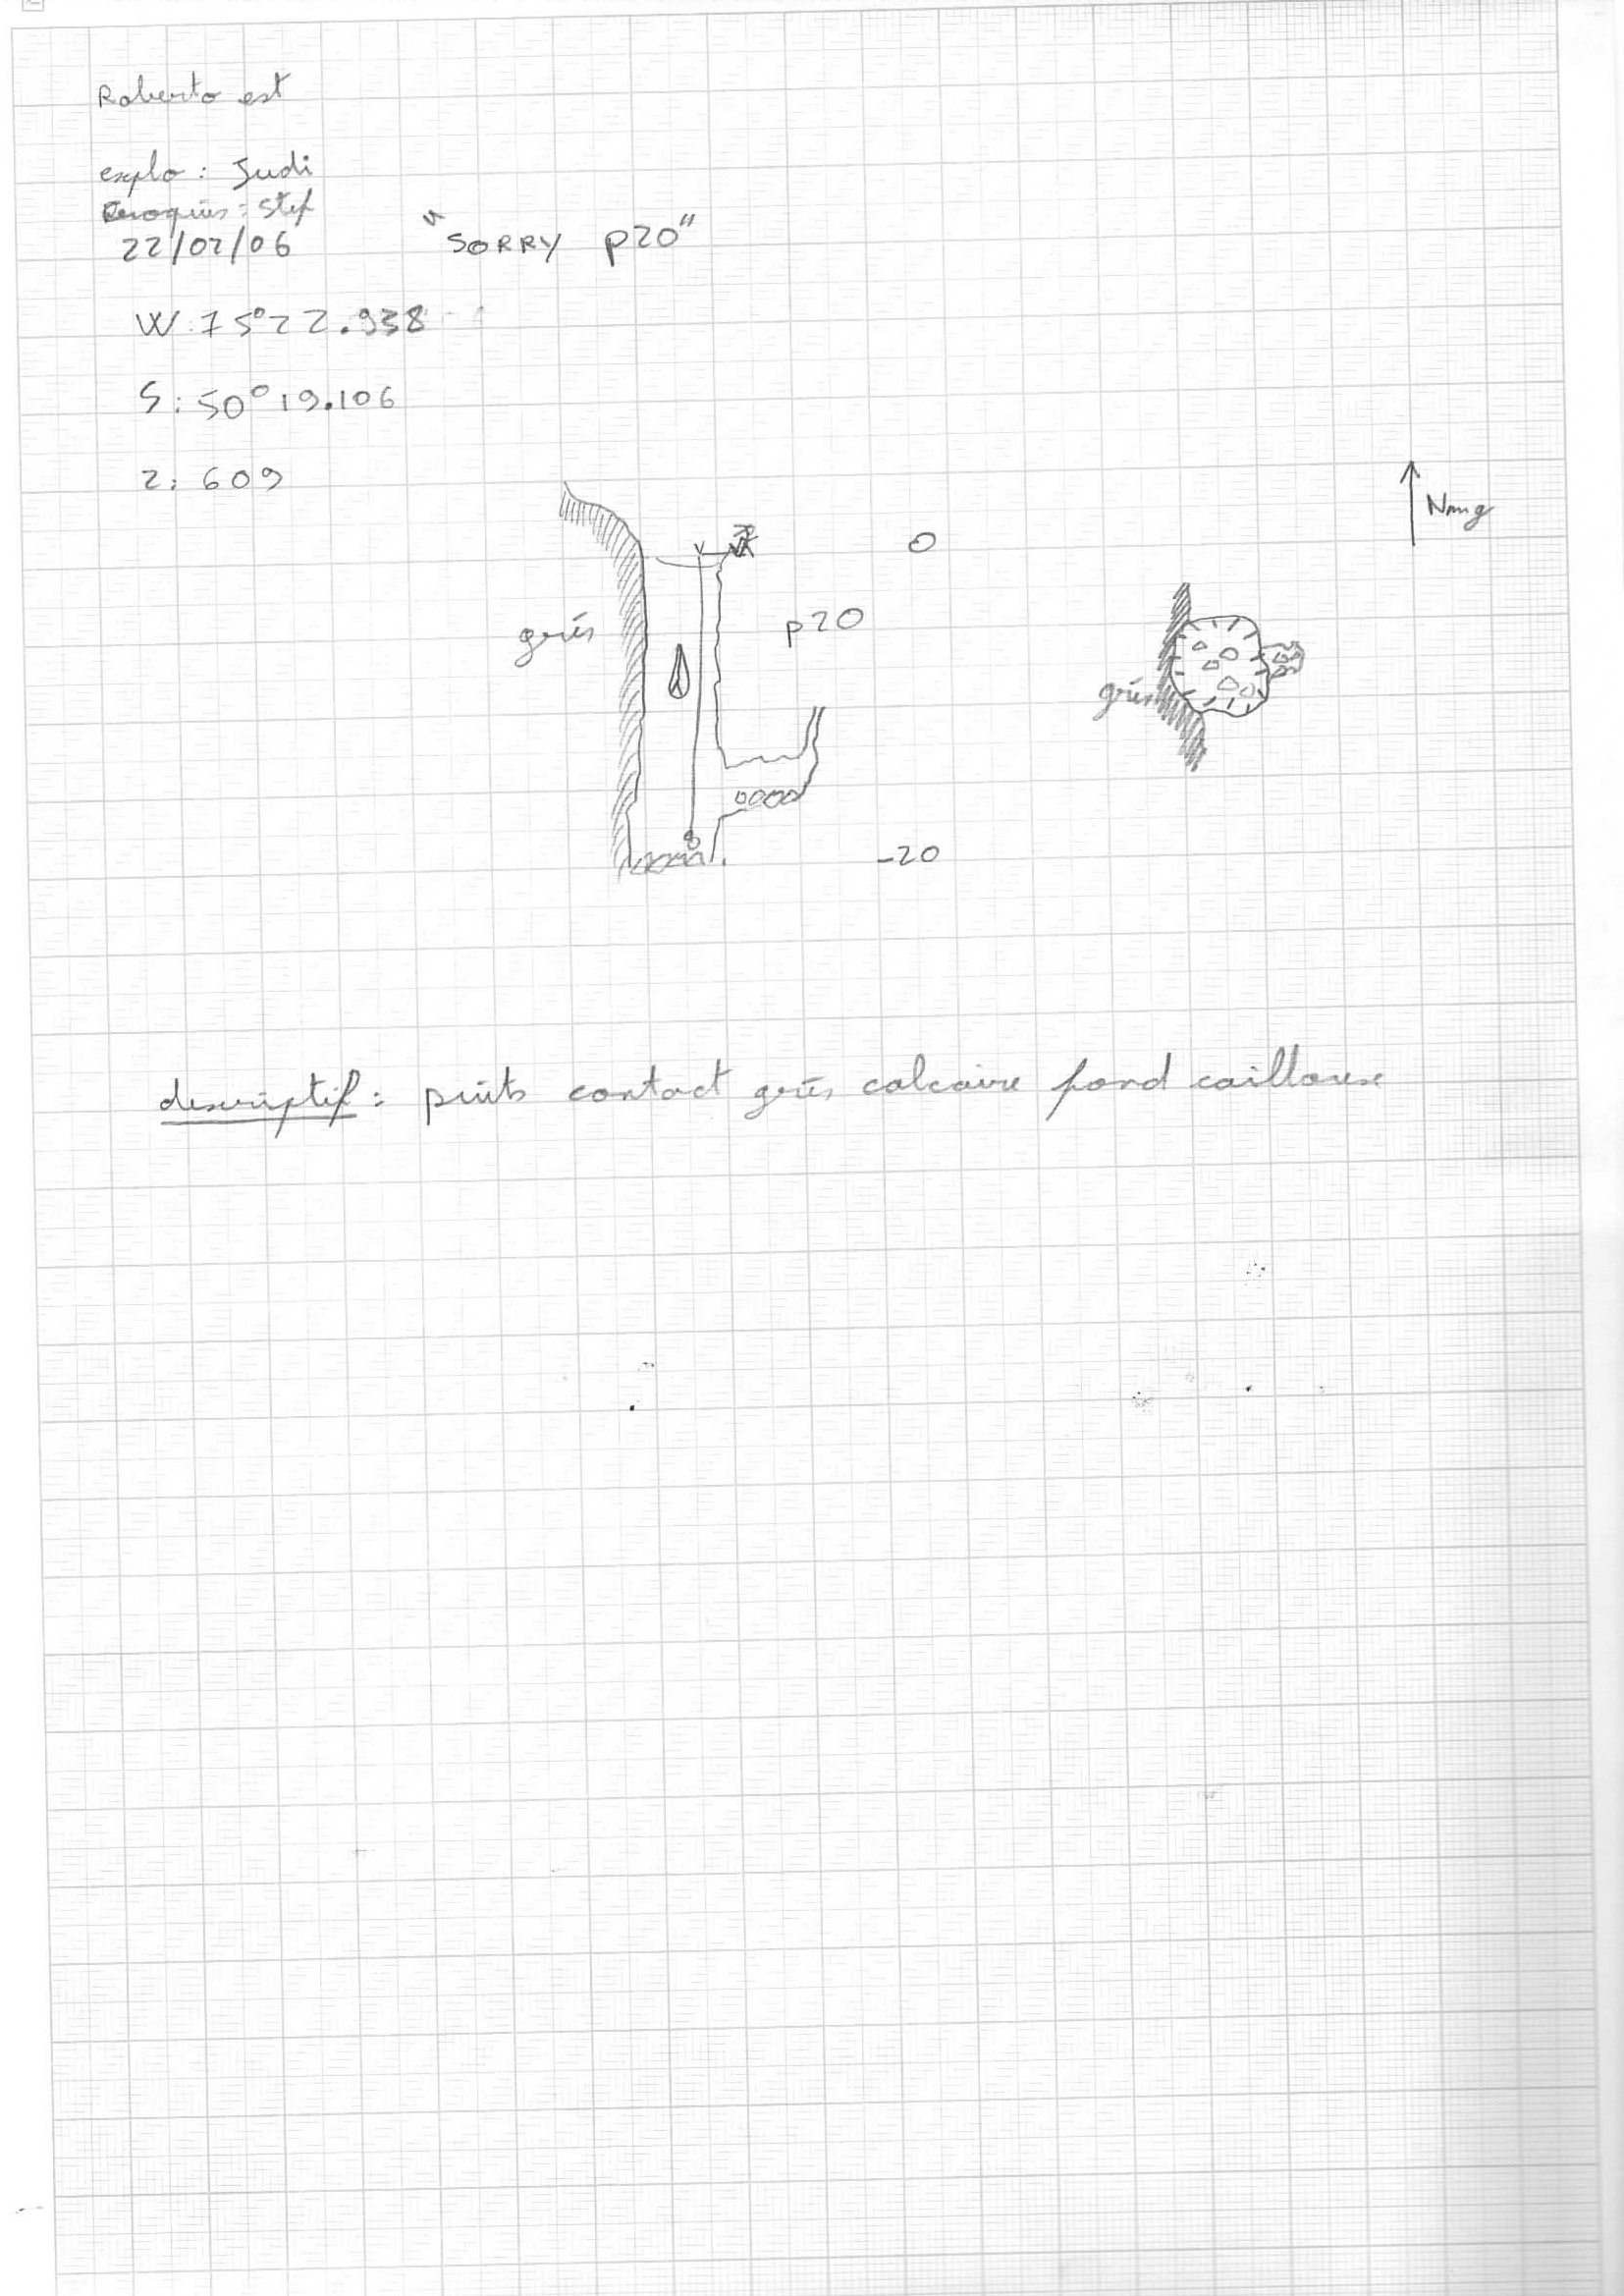 Roberto est
explo : Judi
Croquis : Stef
22/02/06
"SORRY p20"
W : 75°22.938
S : 50°19.106
Z : 609
0
Nmg
p20
grés
grés
-20
descriptif : puits contact grés calcaire fond cailloux